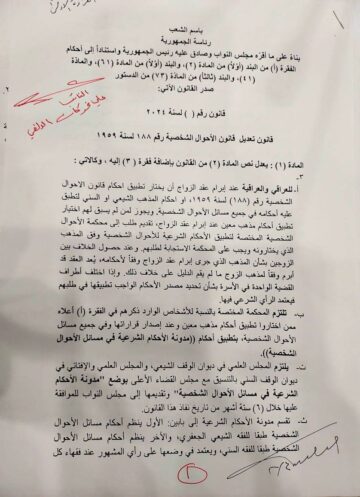 باسم الشعب
رئاسة الجمهورية
بناءً على ما أقرّه مجلس النواب وصادق عليه رئيس الجمهورية واستناداً إلى أحكام
الفقرة (أ) من البند (أولاً) من المادة (٢)، والبند (أولاً) من المادة (٦١)، والمادة
(٤١)، والبند (ثالثاً) من المادة (٧٣) من الدستور
صدر القانون الآتي:
قانون رقم ( ) لسنة ٢٠٢٤
قانون تعديل قانون الأحوال الشخصية رقم ١٨٨ لسنة ١٩٥٩
النائب
المادة (١) : يعدل نص المادة (٢) من القانون بإضافة فقرة (٣) إليه ، وكالاتي :
٣-
أ- للعراقي والعراقية عند إبرام عقد الزواج أن يختار تطبيق احكام قانون الاحوال
الشخصية رقم (١٨٨) لسنة ١٩٥٩، او احكام المذهب الشيعي او السني لتطبق
عليه أحكامه في جميع مسائل الأحوال الشخصية، ويجوز لمن لم يسبق لهم اختيار
تطبيق أحكام مذهب معين عند إبرام عقد الزواج، تقديم طلب إلى محكمة الأحوال
الشخصية المختصة لتطبيق الأحكام الشرعية للأحوال الشخصية وفق المذهب
الذي يختارونه ويجب على المحكمة الاستجابة لطلبهم. وعند حصول الخلاف بين
الزوجين بشأن المذهب الذي جرى إبرام عقد الزواج وفقاً لأحكامه، يُعد العقد قد
أبرم وفقاً لمذهب الزوج ما لم يقم الدليل على خلاف ذلك. وإذا اختلف أطراف
القضية الواحدة في الأسرة بشأن تحديد مصدر الأحكام الواجب تطبيقها في طلبهم
فيعتمد الرأي الشرعي فيها.
ب- تلتزم المحكمة المختصة بالنسبة للأشخاص الوارد ذكرهم في الفقرة (أ) أعلاه
ممن اختاروا تطبيق أحكام مذهب معين وعند إصدار قراراتها وفي جميع مسائل
الأحوال الشخصية، بتطبيق أحكام ((مدونة الأحكام الشرعية في مسائل الأحوال
الشخصية)).
ت- يلتزم المجلس العلمي في ديوان الوقف الشيعي، والمجلس العلمي والإفتائي في
ديوان الوقف السني بالتنسيق مع مجلس القضاء الأعلى بوضع "مدونة الأحكام
الشرعية في مسائل الأحوال الشخصية" وتقديمها إلى مجلس النواب للموافقة
عليها خلال (٦) ستة أشهر من تاريخ نفاذ هذا القانون.
ث- تقسم مدونة الأحكام الشرعية إلى بابين: الأول ينظم أحكام مسائل الأحوال
الشخصية طبقا للفقه الشيعي الجعفري، والآخر ينظم أحكام مسائل الأحوال
الشخصية طبقا للفقه السني، ويعتمد في وضعها على رأي المشهور عند فقهاء كل